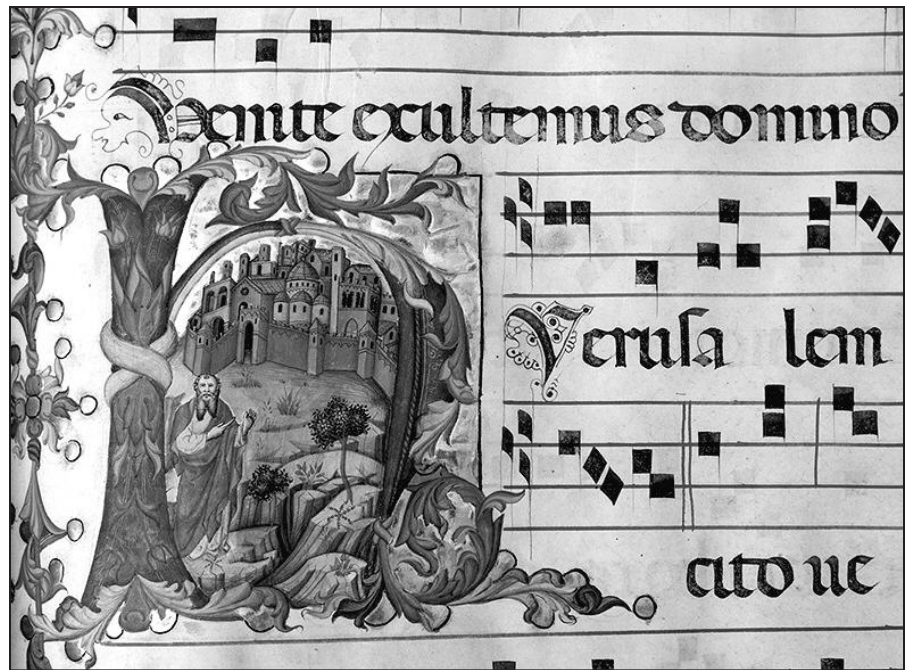 Venite exultemus domino
HIeruſa lem
cito ue